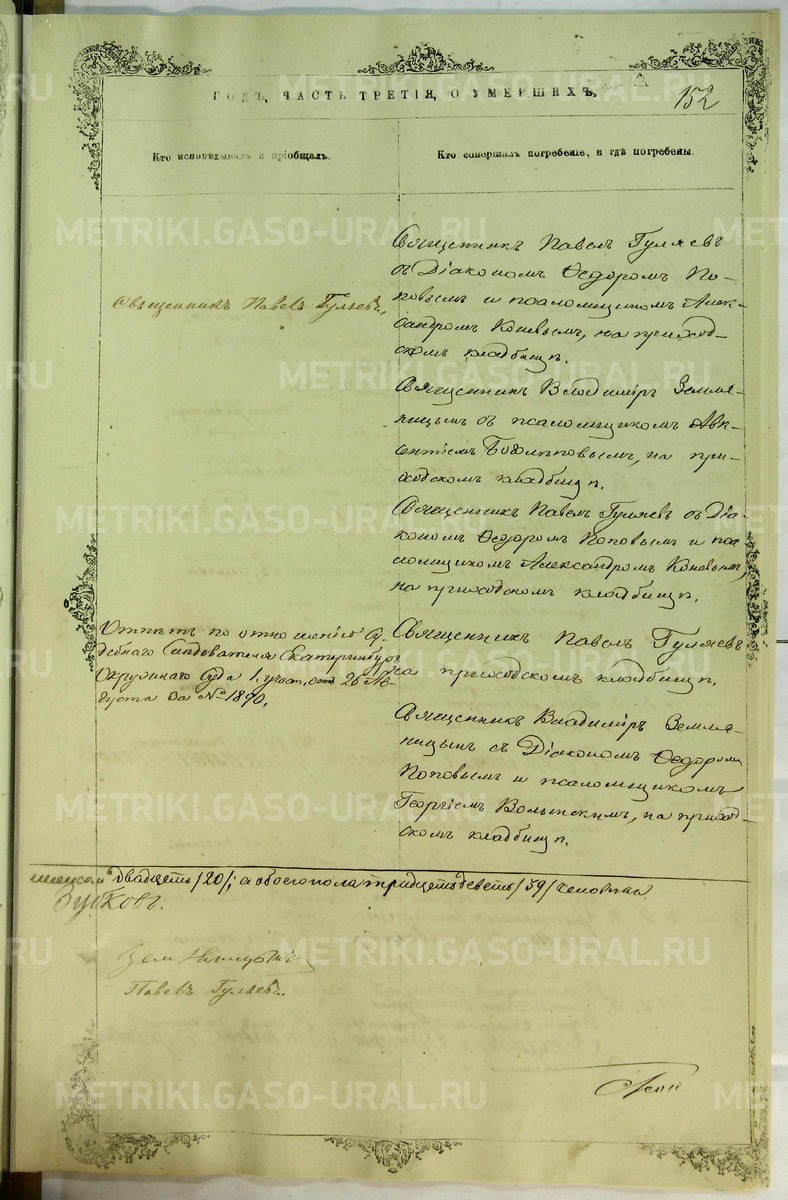 ГОДЪ, ЧАСТЬ ТРЕТІЯ, О УМЕРШИХЪ.
152
Кто исповѣдывалъ и пріобщалъ.
Кто совершалъ погребеніе, и гдѣ погребены.
Священникъ Павелъ Гуляевъ
Священникъ Павелъ Гуляевъ
съ Діакономъ Ѳедоромъ По-
повымъ и псаломщикомъ Алек-
сандромъ Коневымъ, на приход-
скомъ кладбищѣ.
Священникъ Владиміръ Земля-
ницынъ съ псаломщикомъ Авк-
сентіемъ на при-
ходскомъ кладбищѣ.
Священникъ Павелъ Гуляевъ съ Діа-
кономъ Ѳедоромъ Поповымъ и пса
ломщикомъ Александромъ Коневымъ,
на приходскомъ кладбищѣ.
Отпѣтъ по отношенію Су-
дебнаго Слѣдователя Екатеринбур.
Окружнаго Суда 1 участ. отъ 26 Ав-
густа за № 1890.
Священникъ Павелъ Гуляевъ
на приходскомъ кладбищѣ.
Священникъ Владиміръ Земля-
ницынъ съ Діакономъ Ѳедоромъ
Поповымъ и псаломщикомъ
Георгіемъ Волынскимъ, на приход-
скомъ кладбищѣ.
женскаго двадцать /20/; а обоего пола тридцать девять /39/ человѣкъ.
Павелъ Гуляевъ
METRIKI.GASO-URAL.RU